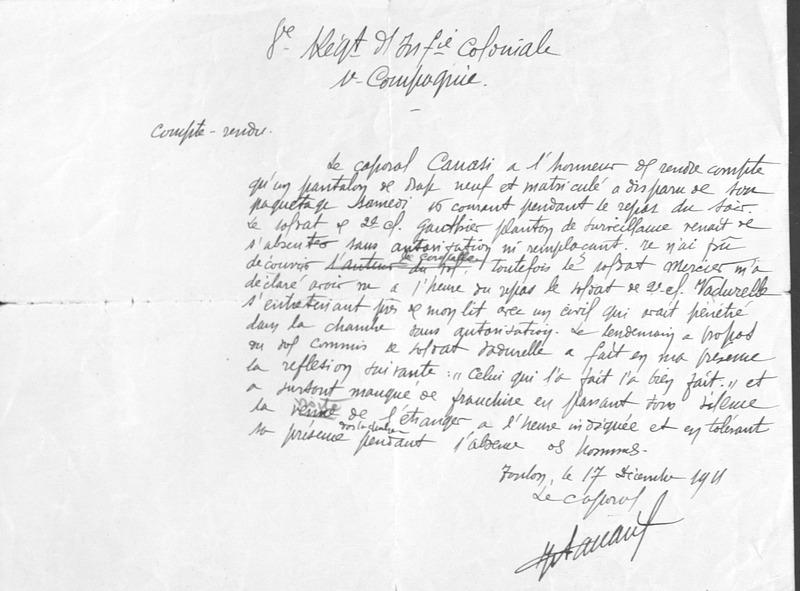 8e Régt d'Infie Coloniale
Compagnie.
Compte-rendu.
Le caporal Canasi a l'honneur de rendre compte
qu'un pantalon de drap neuf et matriculé a disparu de son
paquetage samedi courant pendant le repas du soir.
Le soldat de 2e cl. Gauthier planton de surveillance venait de
s'absenter sans autorisation ni remplaçant. Je n'ai pu
découvrir l'auteur du vol. le coupable Toutefois le soldat Mercier m'a
déclaré avoir vu a l'heure du repas le soldat de 2e cl. Vadurelle
s'entretenant près de mon lit avec un civil qui avait pénétré
dans la chambre sans autorisation. Le lendemain a propos
du vol commis le soldat Vadurelle a fait en ma présence
la reflexion suivante : "Celui qui l'a fait l'a bien fait." et
a surtout manqué de franchise en passant sous silence
la venue de l'étranger a l'heure indiquée et en tolérant
sa présence dans la chambre pendant l'absence des hommes.
Toulon, le 17 Décembre 1911
Le caporal